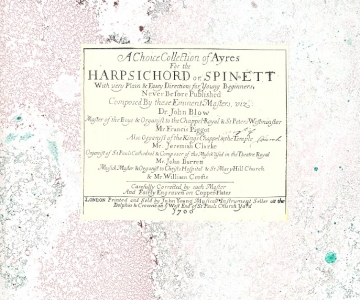 A Choice Collection of Ayres
For the
HARPSICHORD or SPINETT
With very Plain & Easey Directions for Young Beginners,
Never Before Published
Composed By these Eminent Masters, viz.
Dr John Blow
Master of the Boys & Organist to the Chappel Royal & St Peters Westminster
Mr Francis Piggot
Also Organist of the Kings Chappel & the Temple Church
Mr. Jeremiah Clarke
Organist of St Pauls Cathedral & Composer of the Musick Used in the Theatre Royal
Mr John Barrett
Musick Master & Organist to Christs Hospital & St Mary Hill Church.
& Mr William Crofts
Carefully Corrected by each Master
And Fairly Engraven on Copper Plates
LONDON Printed and Sold by John Young Musical Instrument Seller at the
Dolphin & Crown at ye West End of St Pauls Church Yard
1700